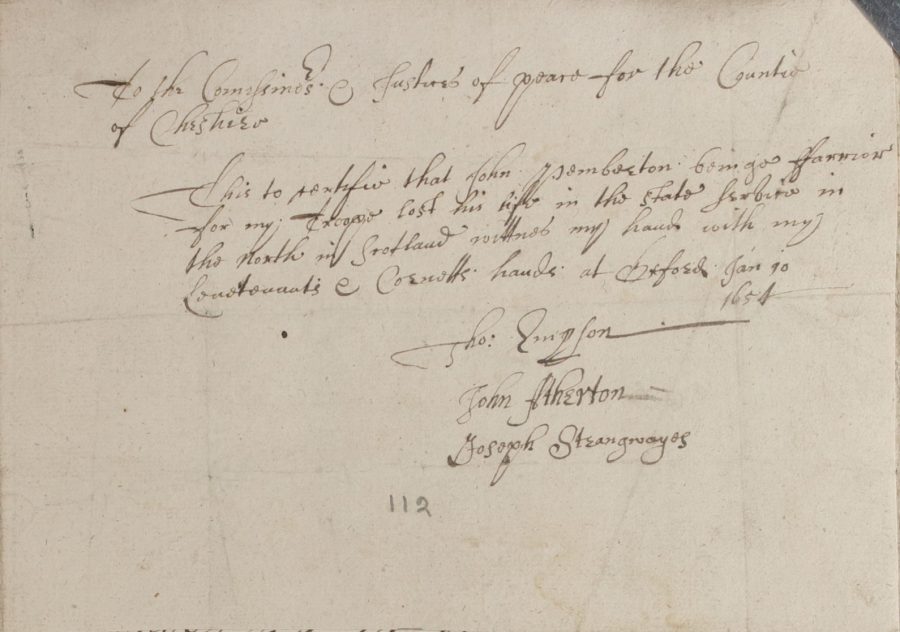 To the Comissiners & Justices of peace for the Countie
of Cheshire
This to certifie that John Pemberton beinge ffarrior
for my Troope lost his life in the state service in
the north in Scotland wittnes my hand with my
Levetenants & Cornetts hands at Oxford Jan 10
1654
Tho: Empson
John Atherton
Joseph Strangwayes
112